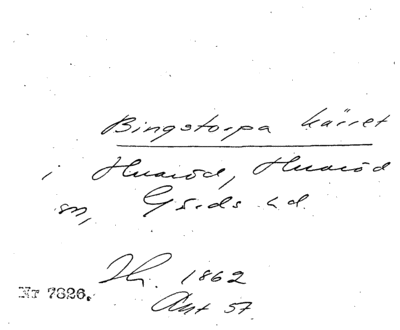 Bingstorpa kärret
i Huaröd, Huaröd
sn, Gärds hd.
1862
Nr 7826. Ant 57